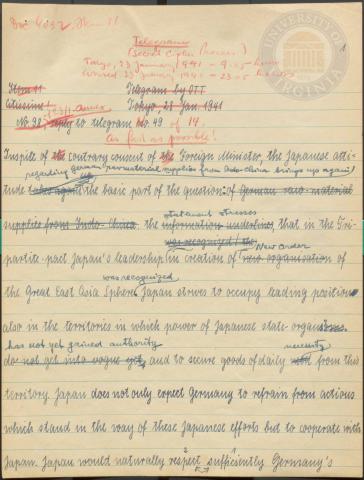 Doc 4052, Item 11
1
Telegramm
(Secret Cipher Process)
Tokyo, 23 January 1941 - 9.05 hours
Arrived 23 January 1941 - 23.05 hours
Item 11 Telegram by OTT
Citissime! Tokyo, 23 Jan 1941
No 98 23/1. Annex reply to telegram No. 49 of 14.
As fast as possible!
Inspite of the contrary consent of the Foreign Minister, the Japanese atti-
regarding German raw material supplies from Indo-China brings up again
tude takes again the basic part of the question of German raw material
statement stresses
supplies from Indo China. the information underlines, that in the Tri-
was recognized the new order
partite pact Japan's leadership in creation of new organisation of
was recognized
the Great East Asia Sphere. Japan strives to occupy leading position
also in the territories in which power of Japanese state organs
has not yet gained authority necessity
do not get into vogue yet, and to secure goods of daily need from this
territory. Japan does not only expect Germany to refrain from actions
which stand in the way of these Japanese efforts but to cooperate with
Japan. Japan would naturally respect sufficiently Germany's